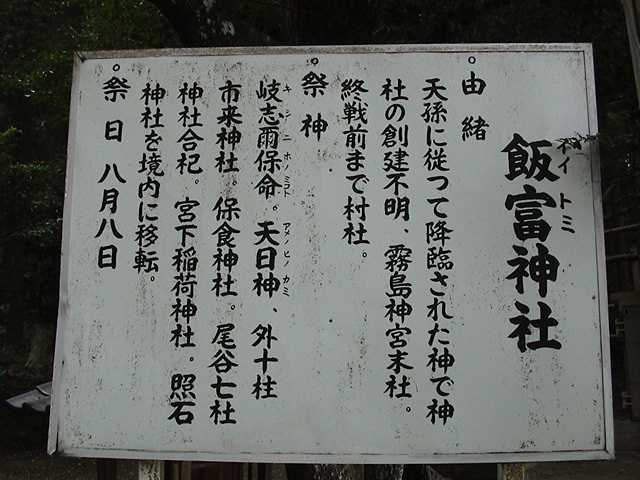 飯富神社
イイトミ
。由緒
天孫に従つて降臨された神で神
社の創建不明、霧島神宮末社。
終戦前まで村社。
。祭神
岐志雨保命。天日神、外十柱
キシニホノミコト
アメノヒノカミ
市来神社。保食神社。尾谷七社
神社合祀。宮下稲荷神社。照石
神社を境内に移転。
。祭日 八月八日